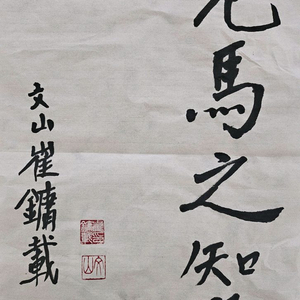 馬之知
文山崔鏞載
文山